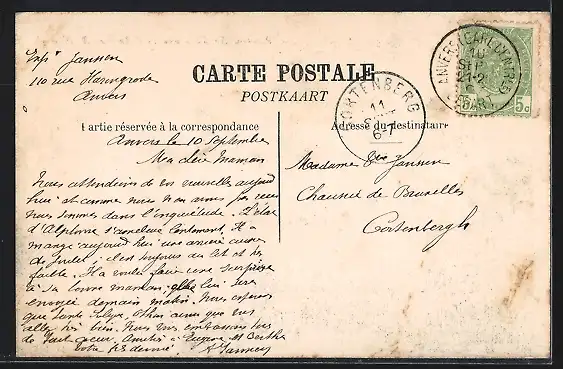 Exp. Janssen
110 rue Haringrode
Anvers
CARTE POSTALE
POSTKAART
Partie réservée à la correspondance
Adresse du destinataire
ANVERS
10
SEPT
5c
CORTENBERG
11
Anvers le 10 Septembre
Ma chère Maman
Nous attendions de vos nouvelles aujourd
hui et comme nous n'en avons pas reçu
Nous sommes dans l'inquiétude. L'état
d'Alphonse s'améliore lentement, Il a
mangé aujourd'hui une
il est toujours au lit et très
faible. Il a voulu faire une surprise
à sa bonne maman, elle lui sera
envoyée demain matin. Nous espérons
que ainsi que vous
allez très bien. Nous vous embrassons tous
de tout cœur. Amitiés à Eugène et Berthe
votre fils dévoué, A Janssen
Madame Vve Janssen
Chaussée de Bruxelles
Cortenbergh